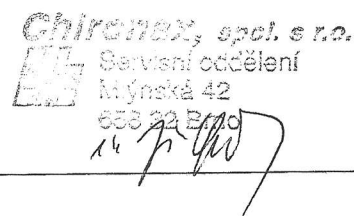 Chironax, spol. s r.o.
Servisní oddělení
Mlýnská 42
658 22 Brno